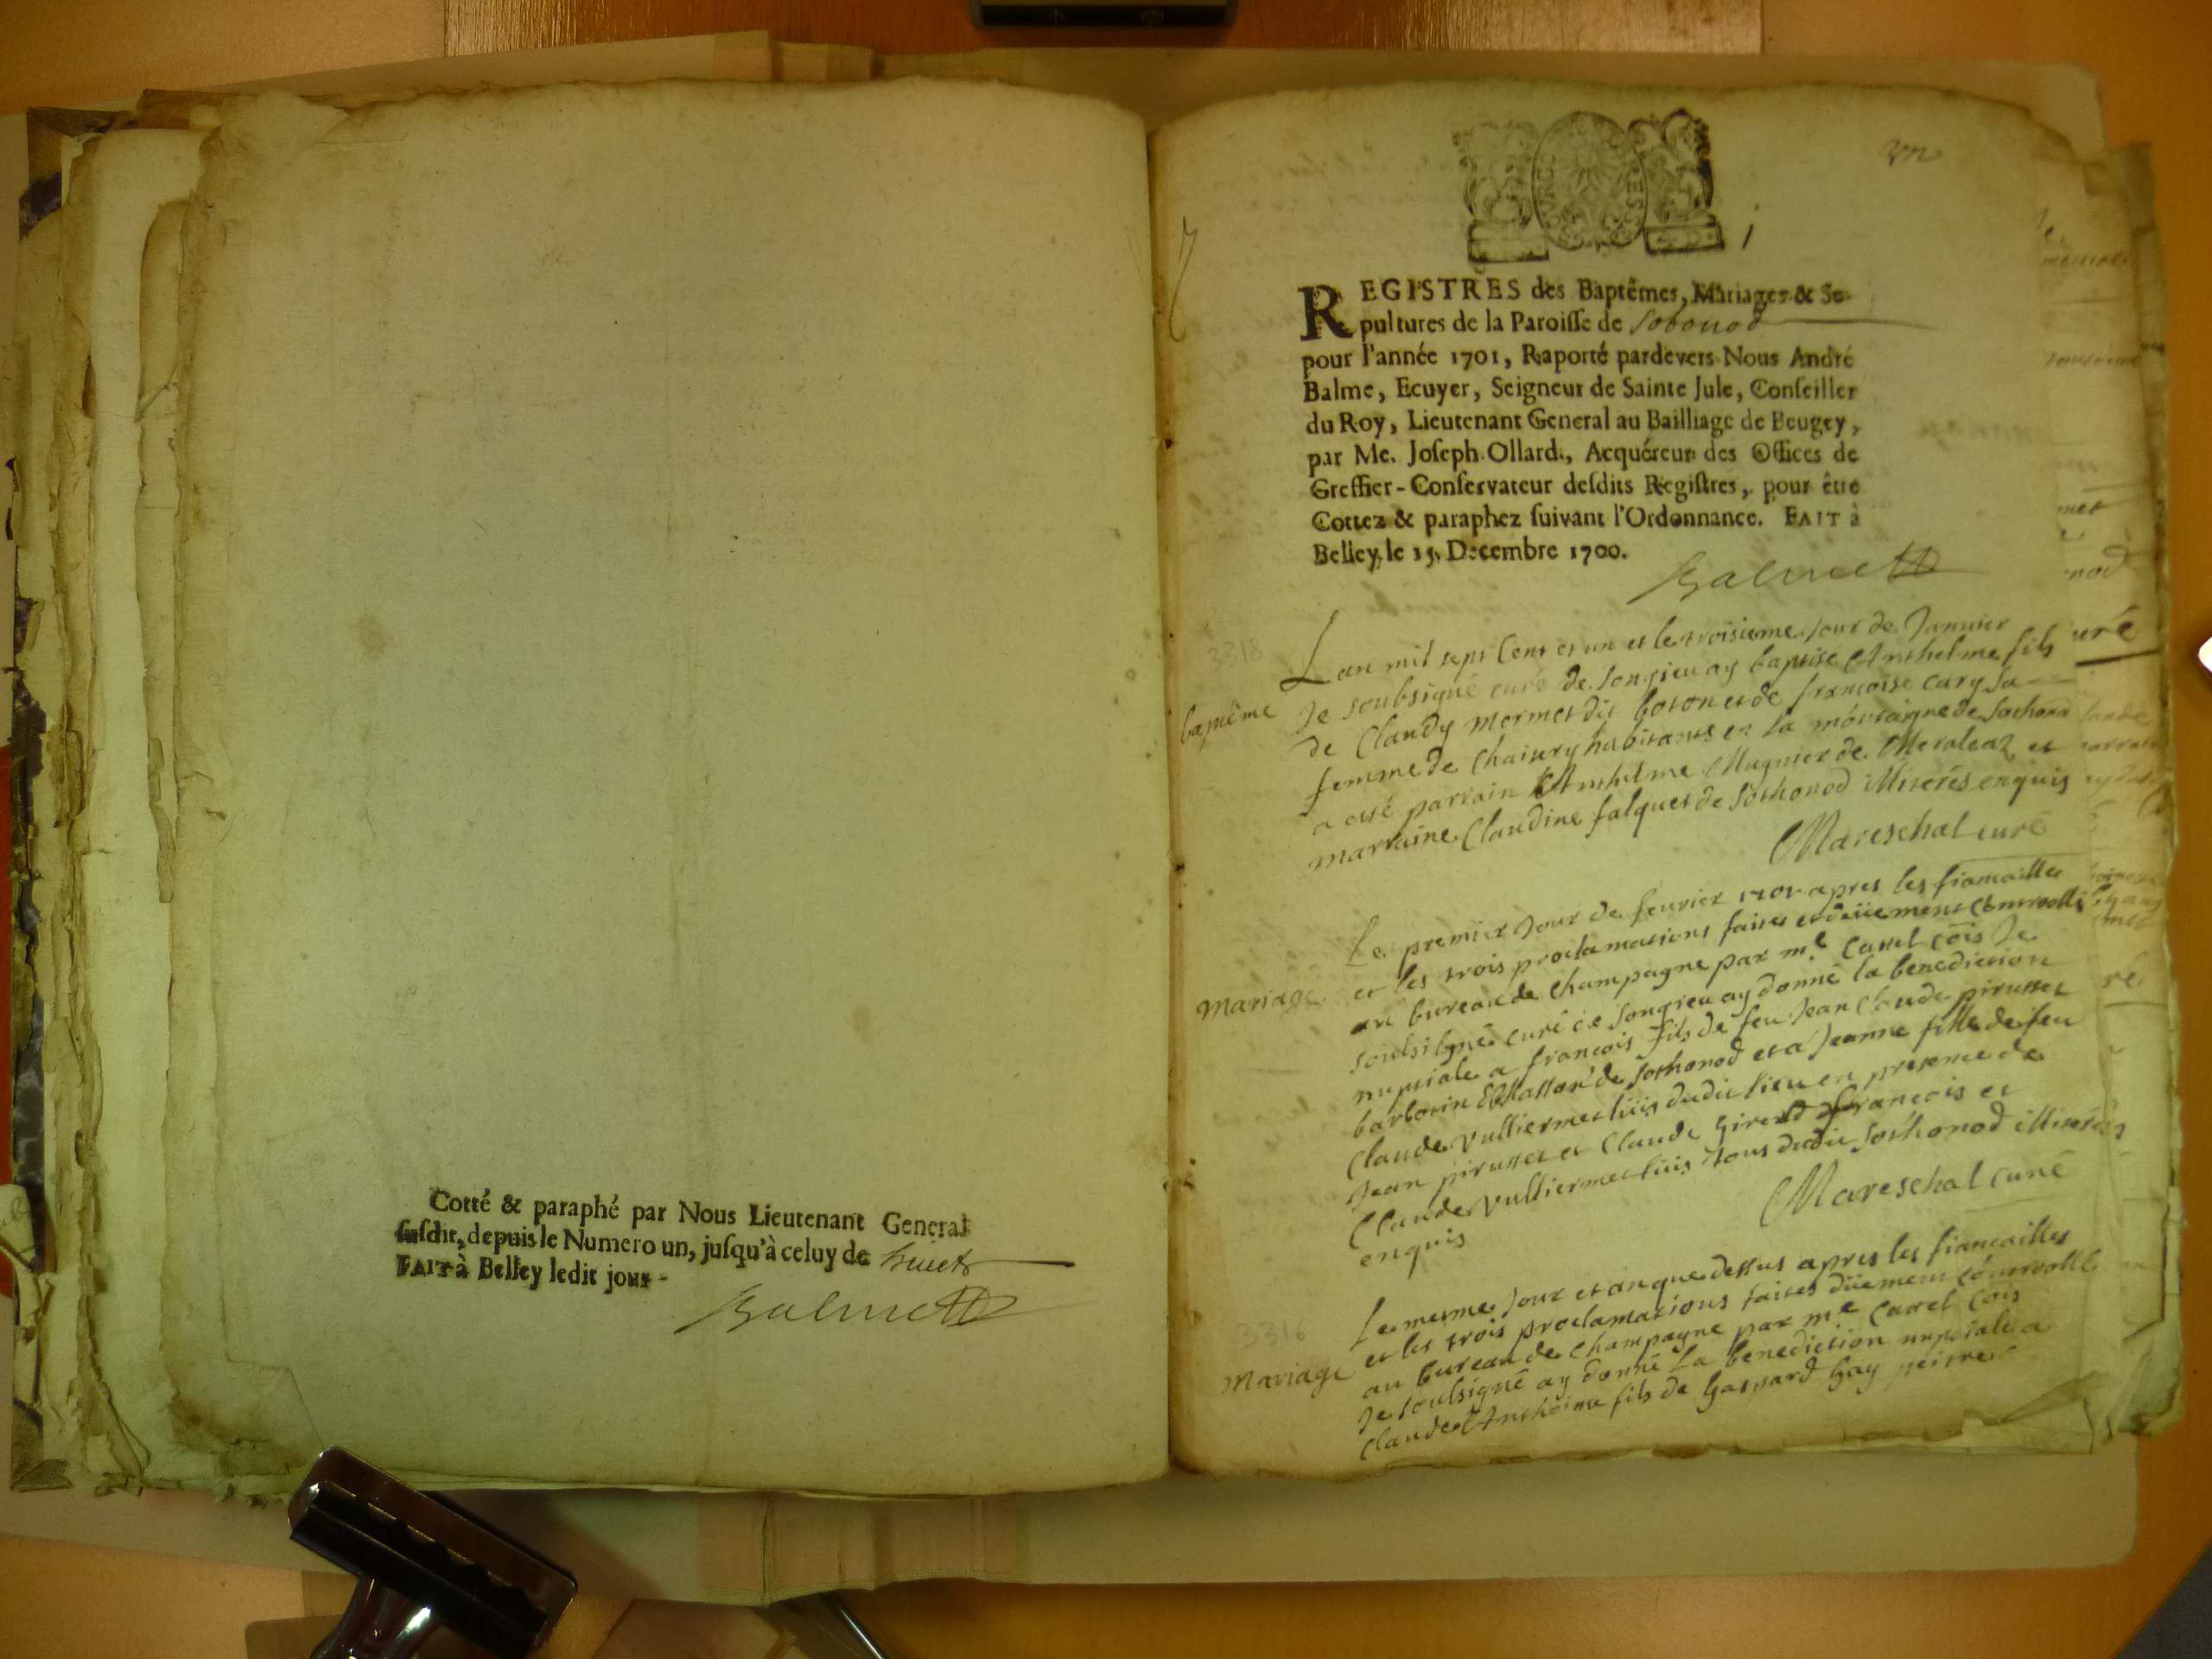 Cotté & paraphé par Nous Lieutenant General
susdit, depuis le Numero un, jusqu'à celuy de huict
FAIT à Belley ledit jour
Balme
REGISTRES des Baptêmes, Mariages & Se-
pultures de la Paroisse de Sotonod
pour l'année 1701, Raporté pardevers Nous André
Balme, Ecuyer, Seigneur de Sainte Jule, Conseiller
du Roy, Lieutenant General au Bailliage de Beugey,
par Me. Joseph Ollard, Acquéreur des Offices de
Greffier-Conservateur desdits Registres, pour être
Cottez & paraphez suivant l'Ordonnance. FAIT à
Belley, le 15. Decembre 1700.
Balme
3318
baptême
Lan mil sept Cent et un et le troisieme Jour de Janvier
Je soubsigné curé de Songieu ay baptisé Anthelme fils
de Claudy Mermet dit boton et de francoise cary sa
femme de Chaisery habitants en la montaigne de Sothonod
a esté parrain Anthelme Mugnier de et
marraine Claudine falquet de Sothonod illiterés enquis
Mareschal curé
Mariage
Le premier Jour de feurier 1701 apres les fiancailles
et les trois proclamations faites et duement Controollé
au bureau de Champagne par me Carrel cōis Je
soubsigné curé de Songieu ay donné la benediction
nuptiale a francois fils de feu Jean Claude pirusset
barbotin de Sothonod et a Jeanne fille de feu
Claude Vulliermet dudit lieu en presence de
Jean pirusset et Claude Girerd francois et
Claude Vulliermet tous dudit Sothonod illiterés
enquis
Mareschal curé
3316
Mariage
Le mesme Jour et an que dessus apres les fiancailles
et les trois proclamations faites duement Controollé
au bureau de Champagne par me Carrel Cōis
Je soubsigné ay donné la benediction nuptiale a
Claude Anthoine fils de Gaspard Gay